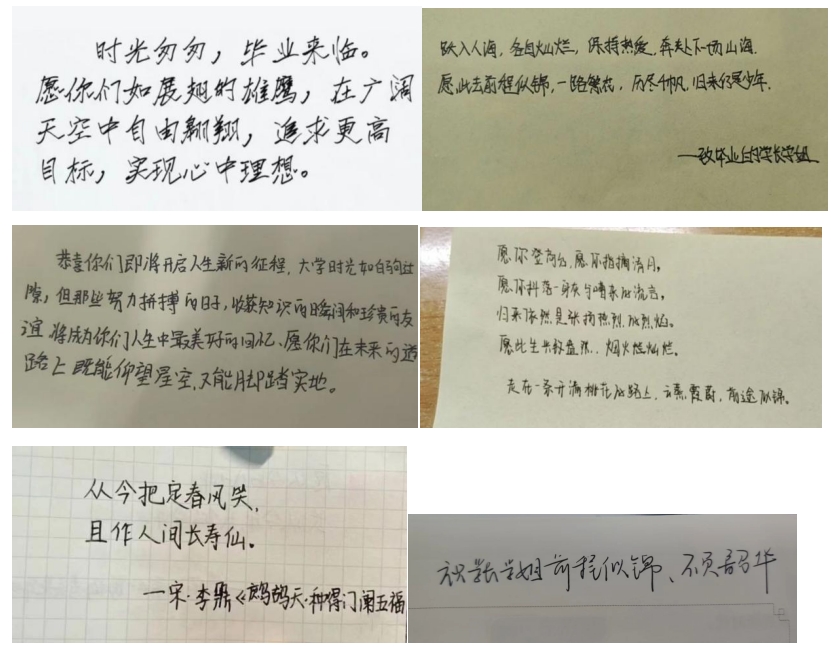 时光匆匆，毕业来临。
愿你们如展翅的雄鹰，在广阔
天空中自由翱翔，追求更高
目标，实现心中理想。
跃入人海，各自灿烂，保持热爱，奔赴下一场山海。
愿此去前程似锦，一路繁花，历尽千帆，归来仍是少年。
——致毕业的学长学姐
恭喜你们即将开启人生新的征程，大学时光如白驹过
隙，但那些努力拼搏的日子，收获知识的瞬间和珍贵的友
谊将成为你们人生中最美好的回忆、愿你们在未来的道
路上既能仰望星空，又能脚踏实地。
愿你登高台，愿你指摘清月。
愿你抖落一身灰与嘈杂的流言，
归来依然是张扬热烈的烈焰。
愿此生半轻盈，烟火烂灿烂。
走在一条开满桃花的路上，云蒸霞蔚，前途似锦。
从今把定春风笑，
且作人间长寿仙。
—宋·李鼎《鹧鸪天·种得门阑五福
祝学长学姐前程似锦、不负韶华